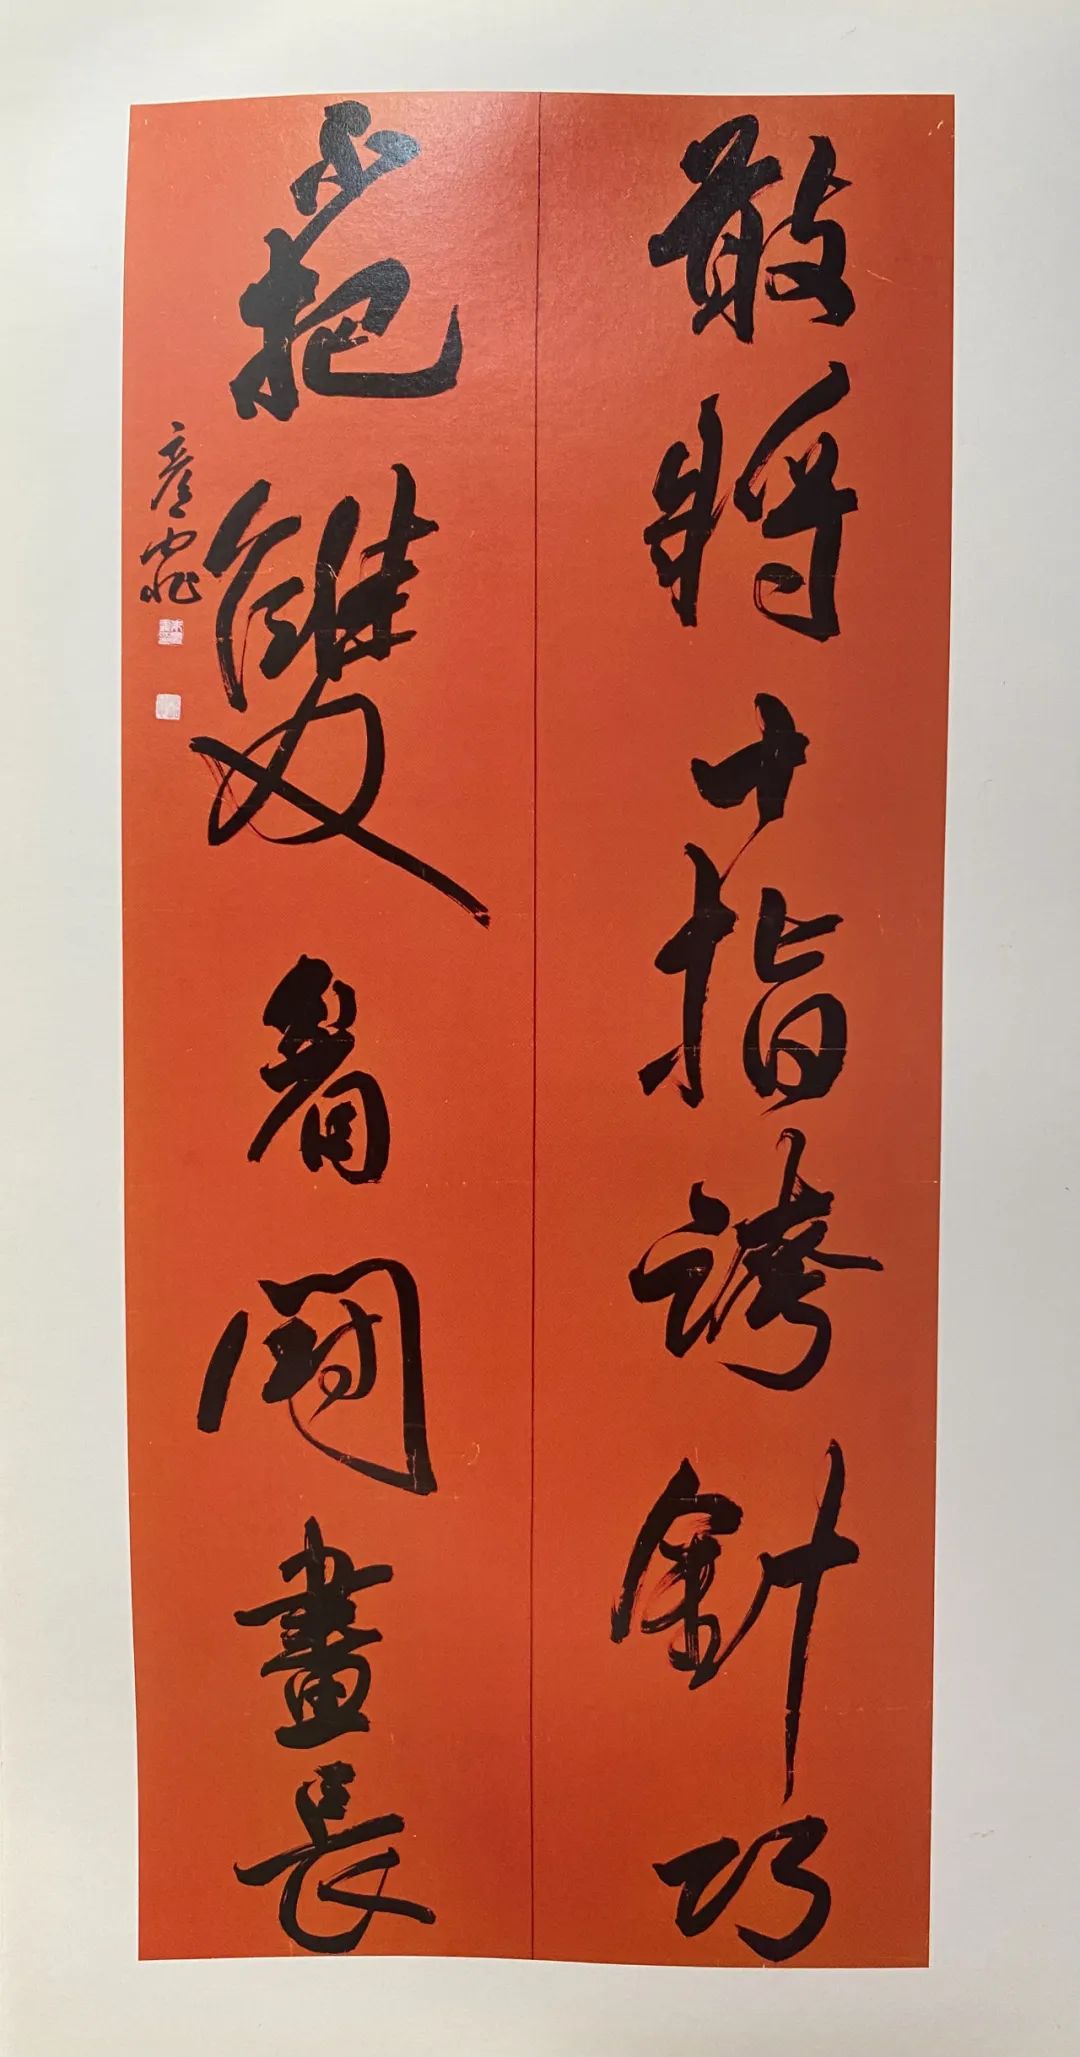 敢將十指誇針巧
不把雙眉鬪畫長
彥